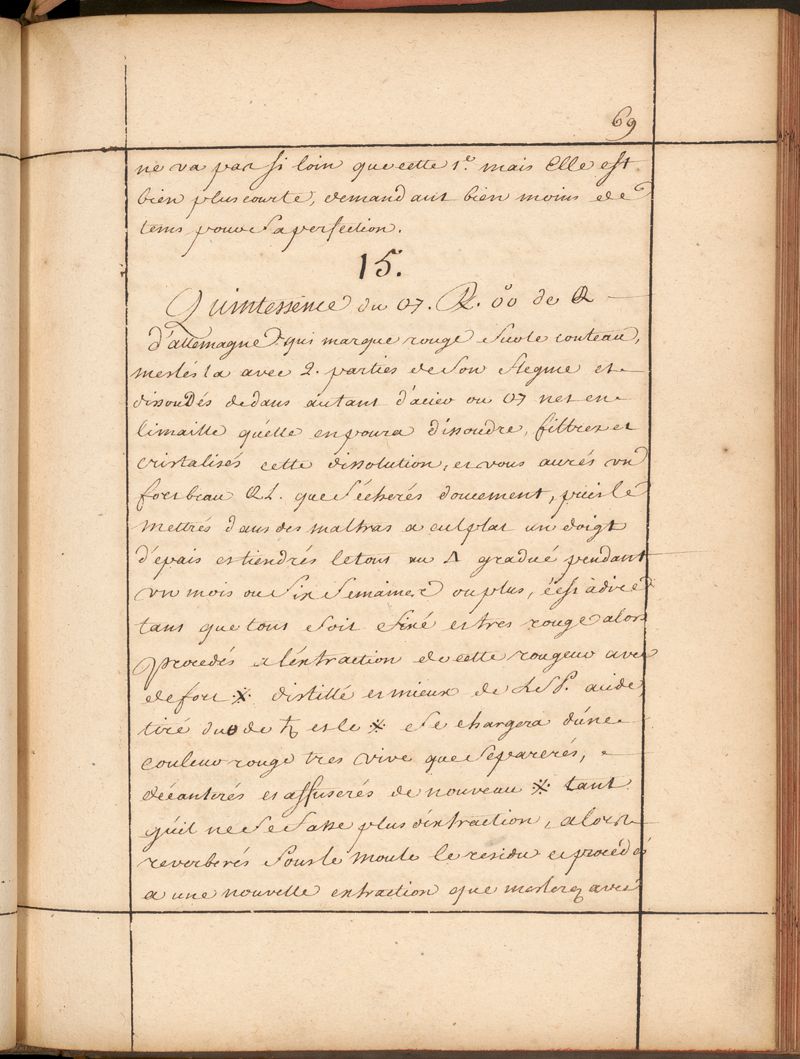 69
ne va pas si loin que cette 1.e mais Elle est
bien plus courte, demandant bien moins de
tems pour Sa perfection.
15.
Quintessence du ♂. R. de
d'allemagne qui marque rouge Sur le couteau,
meslés la avec 2. parties de Son flegme et
dissoudés dedans autant d'acier ou ♂ net en
limaille qu'elle en poura dissoudre, filtrez et
cristalisés cette dissolution, et vous aurés un
fort beau que Sécherés doucement, puis le
mettrés dans des maltras a cul plat un doigt
d'epais et tiendrés le tout au gradué pendant
un mois ou Six Semaines ou plus, c'est à dire
tant que tout Soit fixé et tres rouge alors
procedés a l'éxtraction de cette rougeur avec
de fort distillé et mieux de L'SP. acide
tiré du de ♄ et le Se chargera d'une
couleur rouge tres vive que Separerés,
décanterés et affuserés de nouveau tant
qu'il ne Se fasse plus d'extraction, alors
reverberés Sous le moufle le residu et procedés
a une nouvelle extraction que meslerez avec